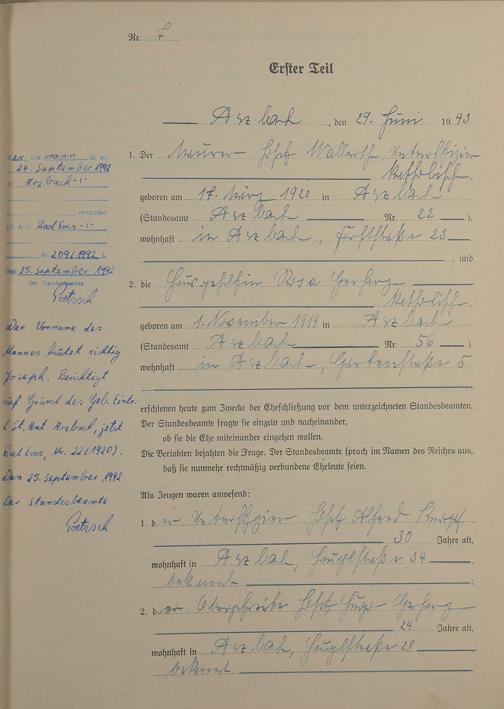 Nr. 7
Erster Teil
Arzbach, den 29. Juni 1943
1. Der Maurer Josef Wallroth, Unteroffizier
katholisch.
geboren am 17. März 1920 in Arzbach
(Standesamt Arzbach Nr. 22).
wohnhaft in Arzbach, 23
, und
2. die Hausgehilfin Rosa Gerharz
katholisch.
geboren am 1. November 1919 in Arzbach
(Standesamt Arzbach Nr. 56).
wohnhaft in Arzbach, Gartenstraße 5
erschienen heute zum Zwecke der Eheschließung vor dem unterzeichneten Standesbeamten.
Der Standesbeamte fragte sie einzeln und nacheinander,
ob sie die Ehe miteinander eingehen wollen.
Die Verlobten bejahten die Frage. Der Standesbeamte sprach im Namen des Reiches aus,
daß sie nunmehr rechtmäßig verbundene Eheleute seien.
Als Zeugen waren anwesend:
1. der Unteroffizier Josef Alfred
30 Jahre alt,
wohnhaft in Arzbach, Hauptstraße 34
bekannt ;
2. der Gerharz
24 Jahre alt,
wohnhaft in Arzbach, Hauptstraße 28
bekannt
Der Ehemann ist am
24. September 1992
in Arzbach -:-
verstorben
(St. Amt Bad Ems -:-
Nr. 209/1992).
Den 25. September 1992
Der Standesbeamte
Der Vorname des
Mannes lautet richtig
Joseph. Berichtigt
auf Grund des Geb. Eintr.
(St. Amt Arzbach, jetzt
Bad Ems, Nr. 22/1920).
Den 25. September 1992
Der Standesbeamte